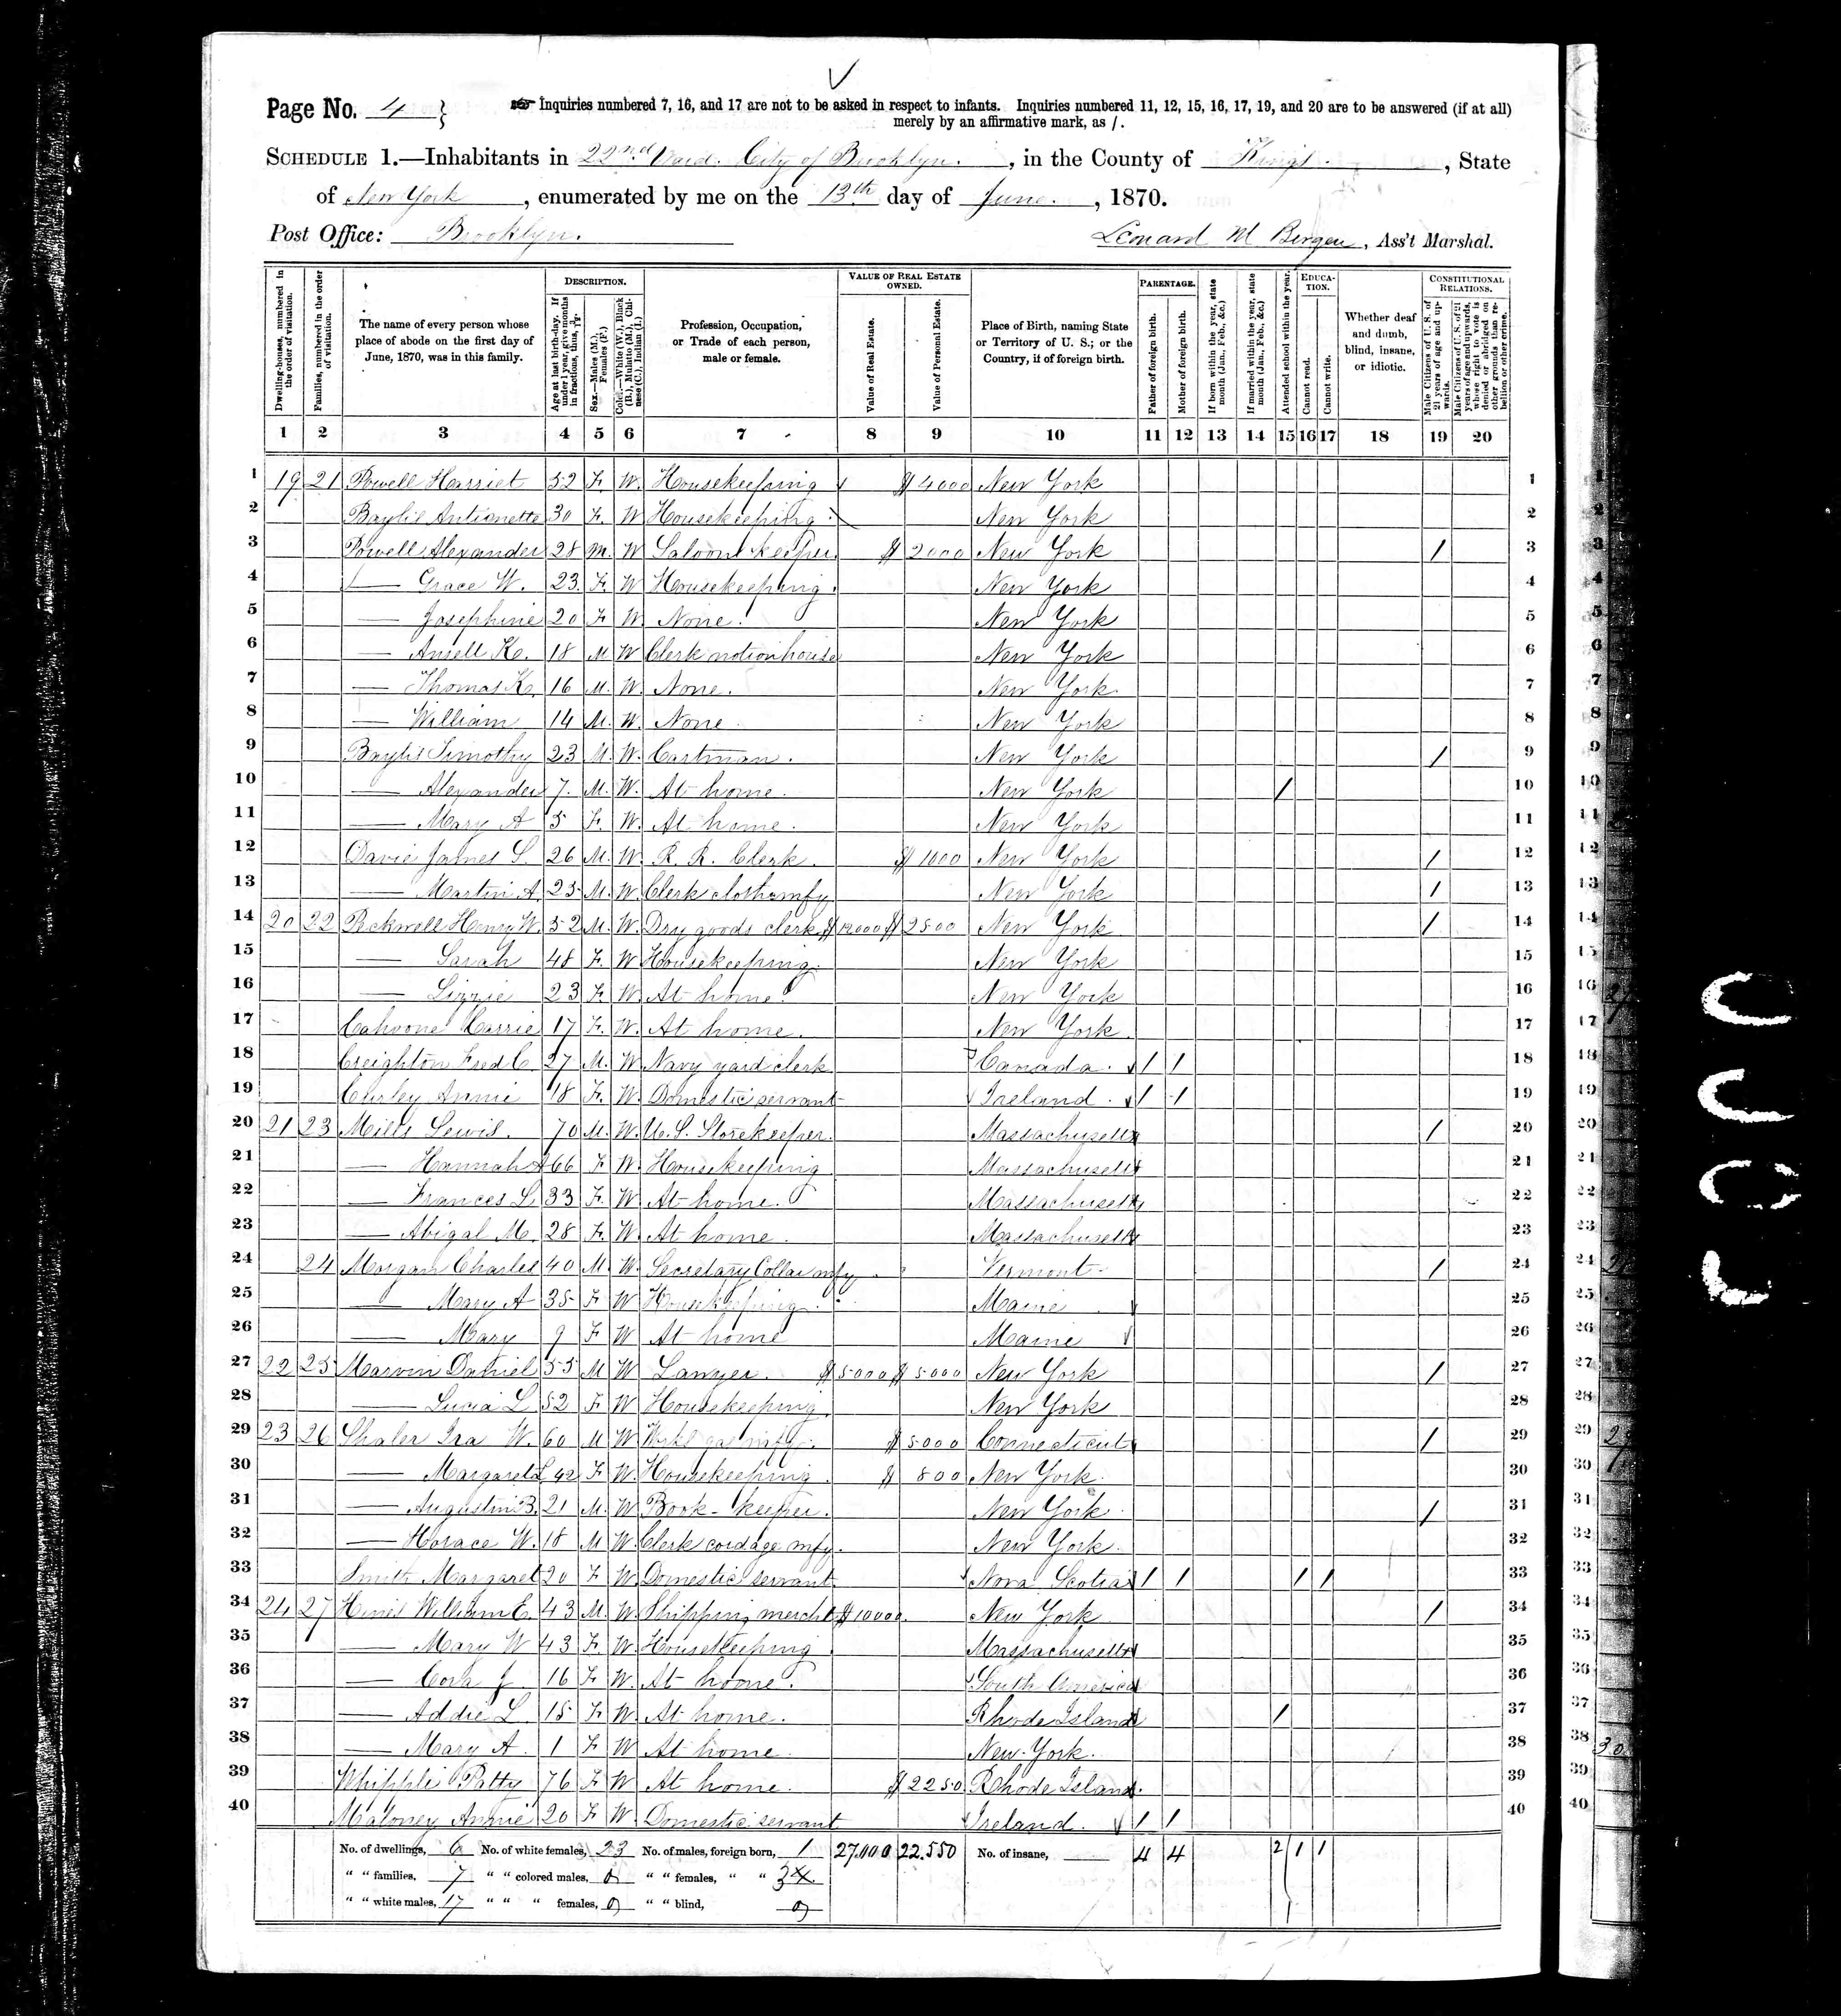 Page No. 4 } Inquiries numbered 7, 16, and 17 are not to be asked in respect to infants. Inquiries numbered 11, 12, 15, 16, 17, 19, and 20 are to be answered (if at all)
merely by an affirmative mark, as /.
SCHEDULE 1.—Inhabitants in 22nd Ward. City of Brooklyn. , in the County of Kings. , State
of New York , enumerated by me on the 13th day of June. , 1870.
Post Office: Brooklyn. Leonard M Bergen , Ass't Marshal.
Dwelling-houses, numbered in the order of visitation.
Families, numbered in the order of visitation.
The name of every person whose place of abode on the first day of June, 1870, was in this family.
DESCRIPTION.
Age at last birth-day. If under 1 year, give months in fractions, thus, 3/12.
Sex.—Males (M.), Females (F.)
Color.—White (W.), Black (B.), Mulatto (M.), Chinese (C.), Indian (I.)
Profession, Occupation, or Trade of each person, male or female.
VALUE OF REAL ESTATE OWNED.
Value of Real Estate.
Value of Personal Estate.
Place of Birth, naming State or Territory of U. S.; or the Country, if of foreign birth.
PARENTAGE.
Father of foreign birth.
Mother of foreign birth.
If born within the year, state month (Jan., Feb., &c.)
If married within the year, state month (Jan., Feb., &c.)
Attended school within the year.
EDUCATION.
Cannot read.
Cannot write.
Whether deaf and dumb, blind, insane, or idiotic.
CONSTITUTIONAL RELATIONS.
Male Citizens of U. S. of 21 years of age and upwards.
Male Citizens of U. S. of 21 years of age and upwards, whose right to vote is denied or abridged on other grounds than rebellion or other crime.
1 2 3 4 5 6 7 8 9 10 11 12 13 14 15 16 17 18 19 20
1 19 21 Powell Harriet 52 F. W. Housekeeping $4000 New York 1
2 Baylis Antionette 30 F. W Housekeeping. New York 2
3 Powell Alexander 28 M. W Saloon keeper. $2000 New York / 3
4 — Grace W. 23. F. W Housekeeping. New York 4
5 — Josephine 20 F. W. None. New York 5
6 — Ansell K. 18 M W Clerk notion house New York 6
7 — Thomas K. 16 M. W. None. New York. 7
8 — William 14 M. W. None. New York 8
9 Baylis Timothy 23 M. W. Cartman. New York / 9
10 — Alexander 7. M. W. At home. New York / 10
11 — Mary A 5 F. W. At home. New York 11
12 Davie James S. 26 M. W. R. R. Clerk. $1000 New York / 12
13 — Martin A. 23 M. W. Clerk cloth mfy New York / 13
14 20 22 Peckwell Henry W. 52 M. W. Dry goods clerk $12000 $2500 New York. / 14
15 — Sarah 48 F. W Housekeeping. New York 15
16 — Lizzie 23 F. W. At home. New York 16
17 Cahoone Carrie 17 F. W. At home. New York. 17
18 Creighton Fred C. 27 M. W. Navy yard clerk Canada. / / 18
19 Curley Annie 18 F. W. Domestic servant Ireland. / / 19
20 21 23 Mills Lewis. 70 M. W. U. S. Storekeeper. Massachusetts / 20
21 — Hannah A 66 F. W. Housekeeping Massachusetts 21
22 — Frances L 33 F. W. At home. Massachusetts 22
23 — Abigal M. 28 F. W. At home. Massachusetts 23
24 24 Morgan Charles 40 M. W. Secretary Collar mfy. Vermont. / 24
25 — Mary A 35 F. W Housekeeping. Maine 25
26 — Mary 9 F. W At home Maine 26
27 22 25 Marvin Daniel 55 M W Lawyer. $5000 $5000 New York / 27
28 — Lucia L 52 F. W Housekeeping. New York 28
29 23 26 Shaler Ira W. 60 M W Wks gas mfy. $5000 Connecticut / 29
30 — Margaret L 42 F. W. Housekeeping. $800 New York. 30
31 — Augustin B. 21 M. W Book-keeper. New York. / 31
32 — Horace W. 18 M W. Clerk cordage mfy. New York. 32
33 Smith Margaret 20 F. W. Domestic servant Nova Scotia / / / / 33
34 24 27 Hines William E. 43 M. W. Shipping mercht. $10000. New York / 34
35 — Mary W 43 F. W. Housekeeping. Massachusetts 35
36 — Cora J 16 F. W. At home. South America 36
37 — Addie L. 15 F. W. At home. Rhode Island / 37
38 — Mary A. 1 F. W At home. New York. 38
39 Whipple Patty 76 F. W At home. $2250 Rhode Island. 39
40 Maloney Annie 20 F. W. Domestic servant Ireland. / / 40
No. of dwellings, 6 No. of white females, 23 No. of males, foreign born, 1 27,000 22.550 No. of insane, — 4 4 2 1 1
" " families, 7 " " colored males, 0 " " females, " " 3
" " white males, 17 " " " females, 0 " " blind, 0